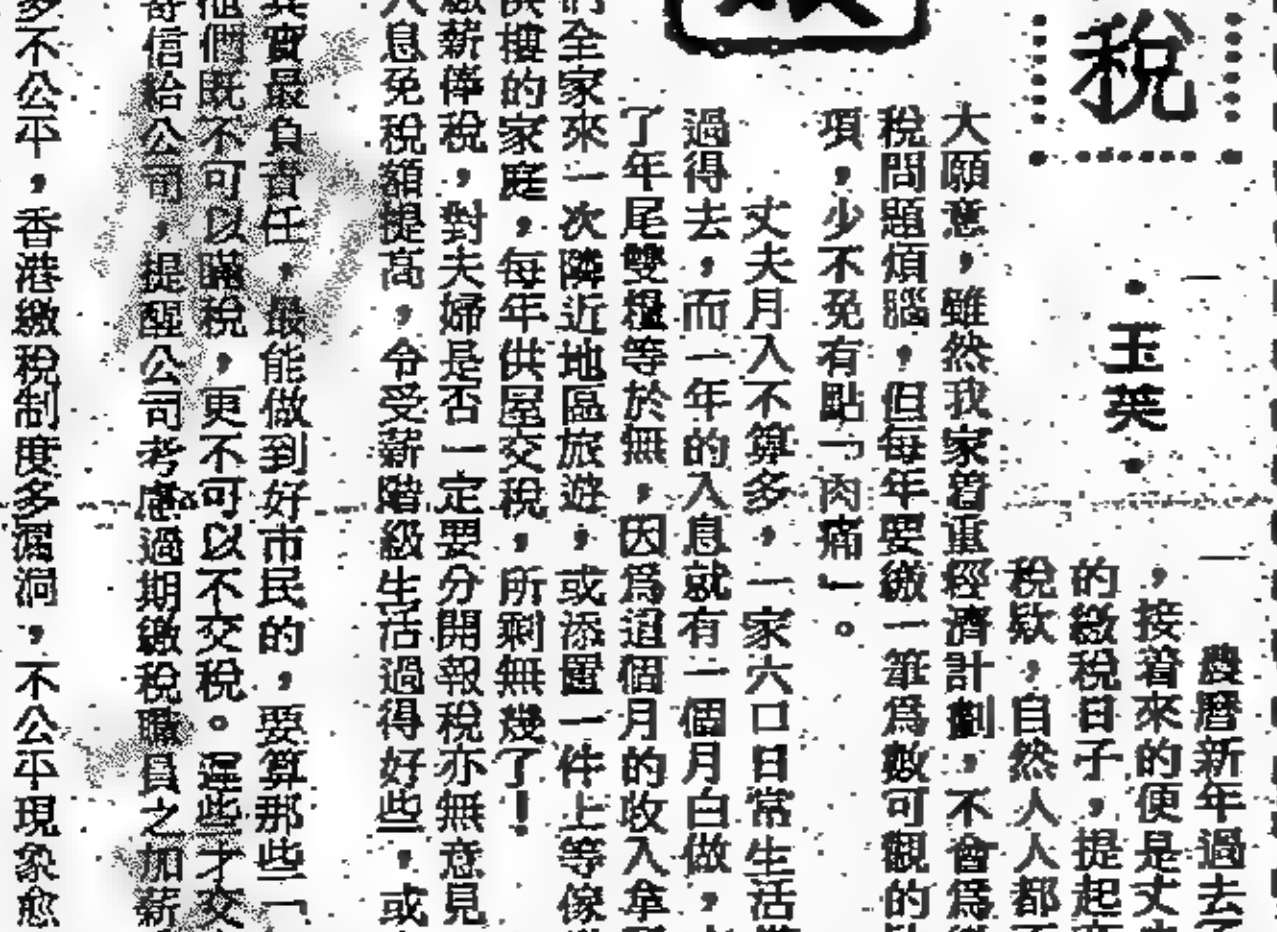 稅
·玉英·
農曆新年過去了
，接着來的便是丈夫
的繳稅日子，提起
稅欵，自然人人都不
大願意，雖然我家着重經濟計劃，不會爲
稅問題煩腦，但每年要繳一筆爲數可觀的
項，少不免有點「肉痛」。
丈夫月入不算多，一家六口日常生活
過得去，而一年的入息就有一個月白做，
了年尾雙糧等於無，因爲這個月的收入拿
們全家來一次隣近地區旅遊，或添置一件上等傢
供樓的家庭，每年供屋交稅，所剩無幾了！
繳薪俸稅，對夫婦是否一定要分開報稅亦無意見
入息免稅額提高，令受薪階級生活過得好些，或
其實最負責任，最能做到好市民的，要算那些「
他們既不可以瞞稅，更不可以不交稅。遲些才交
寄信給公司，提醒公司考慮過期繳稅職員之加薪
多不公平，香港繳稅制度多漏洞，不公平現象愈